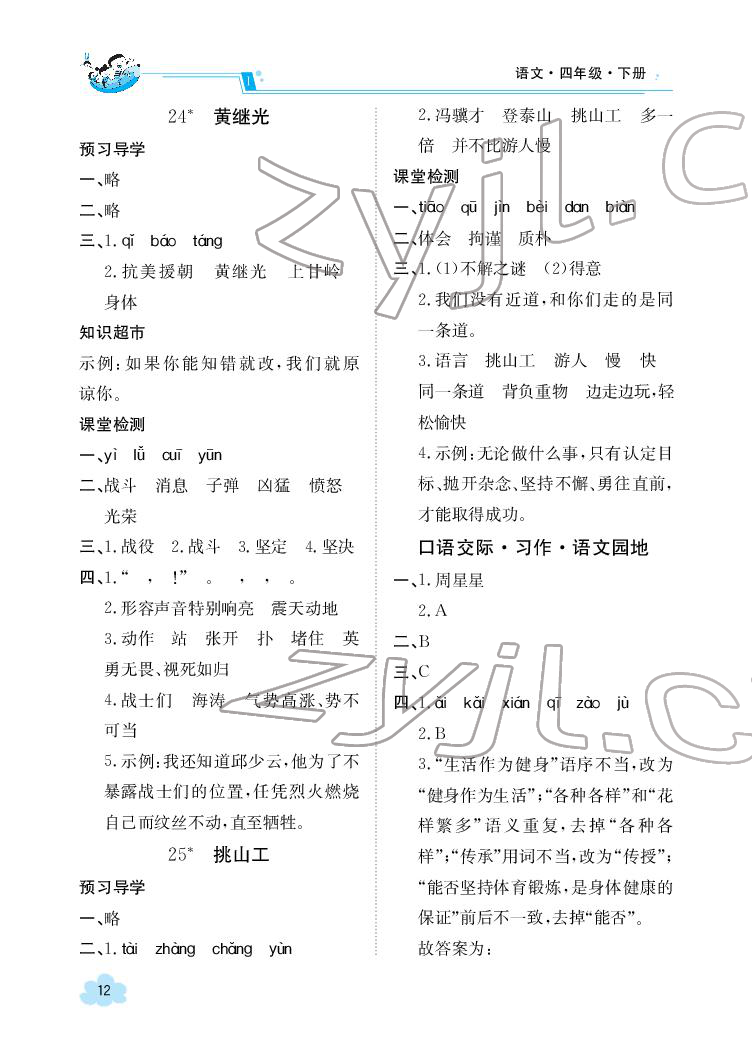 语文·四年级·下册
24* 黄继光
预习导学
一、略
二、略
三、1. qǐ báo táng
2. 抗美援朝 黄继光 上甘岭
身体
知识超市
示例:如果你能知错就改,我们就原
谅你。
课堂检测
一、yì lǚ cuī yūn
二、战斗 消息 子弹 凶猛 愤怒
光荣
三、1. 战役 2. 战斗 3. 坚定 4. 坚决
四、1. “ , !” 。 , , 。
2. 形容声音特别响亮 震天动地
3. 动作 站 张开 扑 堵住 英
勇无畏、视死如归
4. 战士们 海涛 气势高涨、势不
可当
5. 示例:我还知道邱少云,他为了不
暴露战士们的位置,任凭烈火燃烧
自己而纹丝不动,直至牺牲。
25* 挑山工
预习导学
一、略
二、1. tài zhàng chǎng yùn
2. 冯骥才 登泰山 挑山工 多一
倍 并不比游人慢
课堂检测
一、tiāo qū jìn bèi dan biàn
二、体会 拘谨 质朴
三、1. (1)不解之谜 (2)得意
2. 我们没有近道,和你们走的是同
一条道。
3. 语言 挑山工 游人 慢 快
同一条道 背负重物 边走边玩,轻
松愉快
4. 示例:无论做什么事,只有认定目
标、抛开杂念、坚持不懈、勇往直前,
才能取得成功。
口语交际·习作·语文园地
一、1. 周星星
2. A
二、B
三、C
四、1. ǎi kǎi xián qī zào jù
2. B
3. “生活作为健身”语序不当,改为
“健身作为生活”;“各种各样”和“花
样繁多”语义重复,去掉“各种各
样”;“传承”用词不当,改为“传授”;
“能否坚持体育锻炼,是身体健康的
保证”前后不一致,去掉“能否”。
故答案为:
12
zyjl.c
zyjl.c